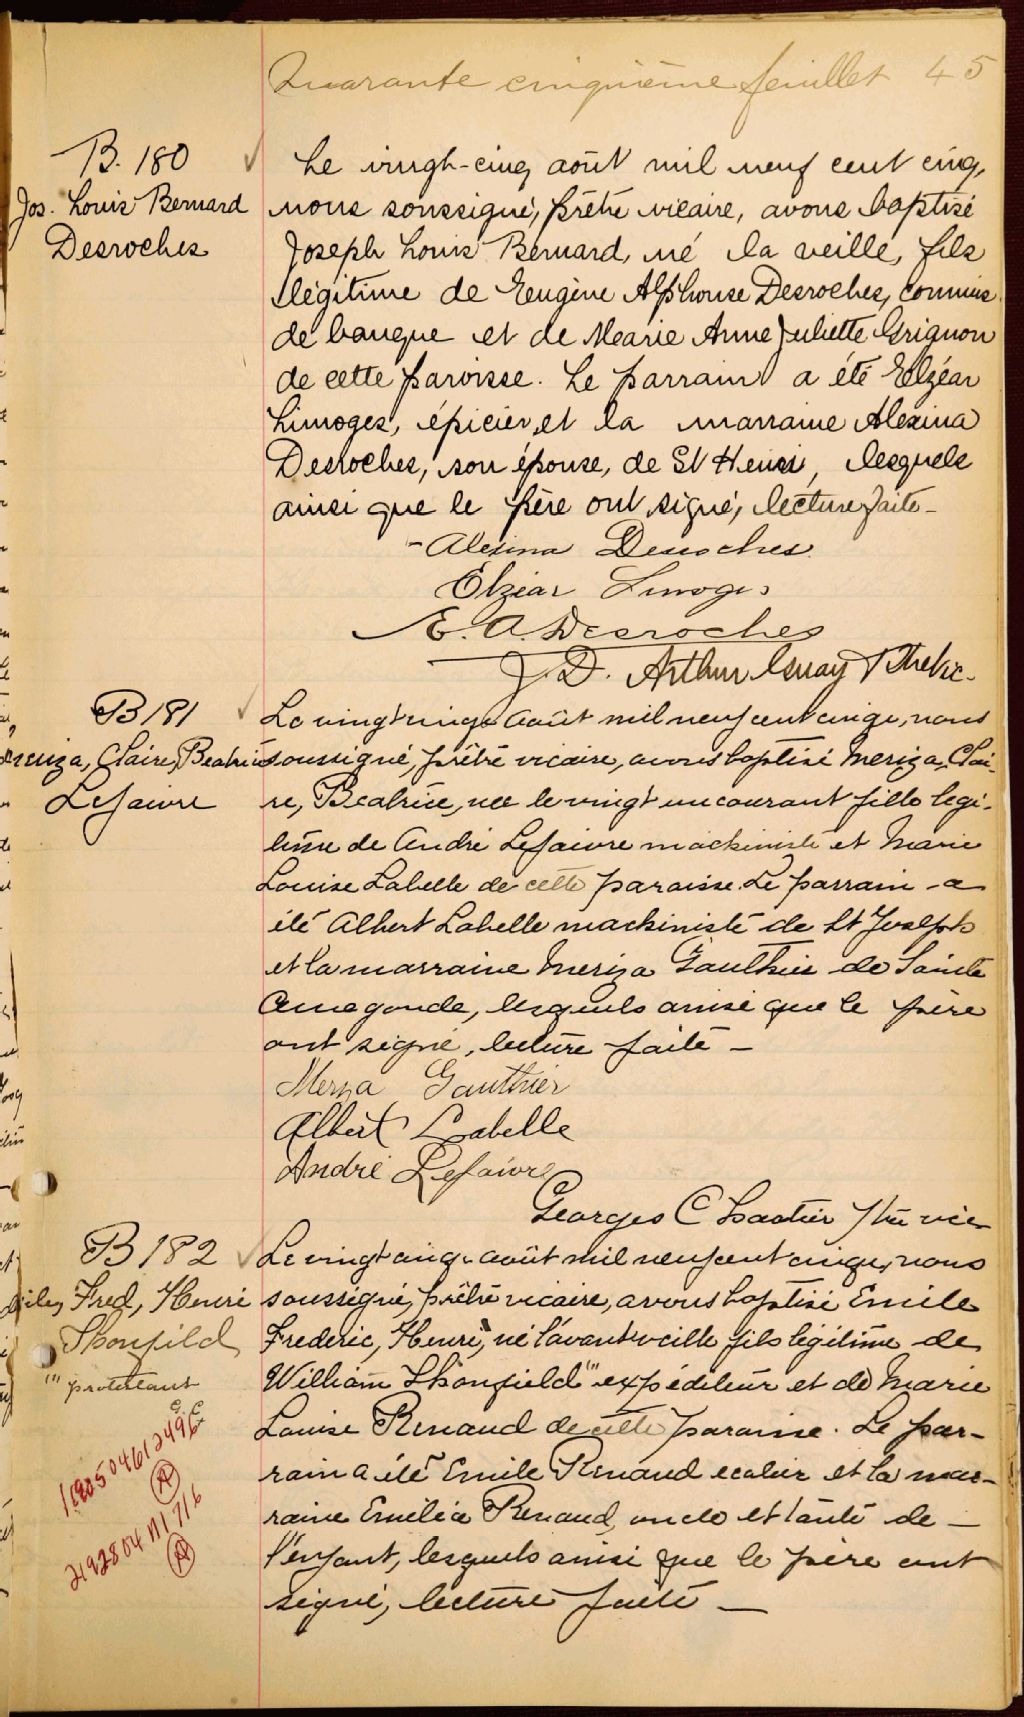 Quarante cinquième feuillet 45
B. 180
Jos. Louis Bernard
Desroches
Le vingt-cinq août mil neuf cent cinq,
nous soussigné, prêtre vicaire, avons baptisé
Joseph Louis Bernard, né la veille, fils
légitime de Eugène Alphonse Desroches, commis
de banque et de Marie Anne Juliette Grignon
de cette paroisse. Le parrain a été Elzéar
Limoges, épicier, et la marraine Alexina
Desroches, son épouse, de St Henri, lesquels
ainsi que le père ont signé, lecture faite -
- Alexina Desroches
Elzéar Limoges
E. A. Desroches
J. D. Arthur Ptre Vic.
B 181
Claire, Beatrice
Lefaivre
Le vingt cinq août mil neuf cent cinq, nous
soussigné, prêtre vicaire, avons baptisé Meriza, Clai-
re, Béatrice, née le vingt un courant fille légi-
time de André Lefaivre machiniste et Marie
Louise Labelle de cette paroisse. Le parrain a
été Albert Labelle machiniste de St Joseph
et la marraine Meriza Gauthier de Sainte
Cunegonde, lesquels ainsi que le père
ont signé, lecture faite -
Meriza Gauthier
Albert Labelle
André Lefaivre
Georges Chartier Ptre vic
B 182
Fred, Henri
Shonfild
"' protestant
Le vingt cinq août mil neuf cent cinq, nous
soussigné, prêtre vicaire, avons baptisé Emile
Frederic, Henri, né l'avant veille fils légitime de
William Shonfield"' expéditeur et de Marie
Louise Renaud de cette paroisse. Le par-
rain a été Emile Renaud écolier et la mar-
raine Emélia Renaud, oncle et tante de -
l'enfant, lesquels ainsi que le père ont
signé, lecture faite -